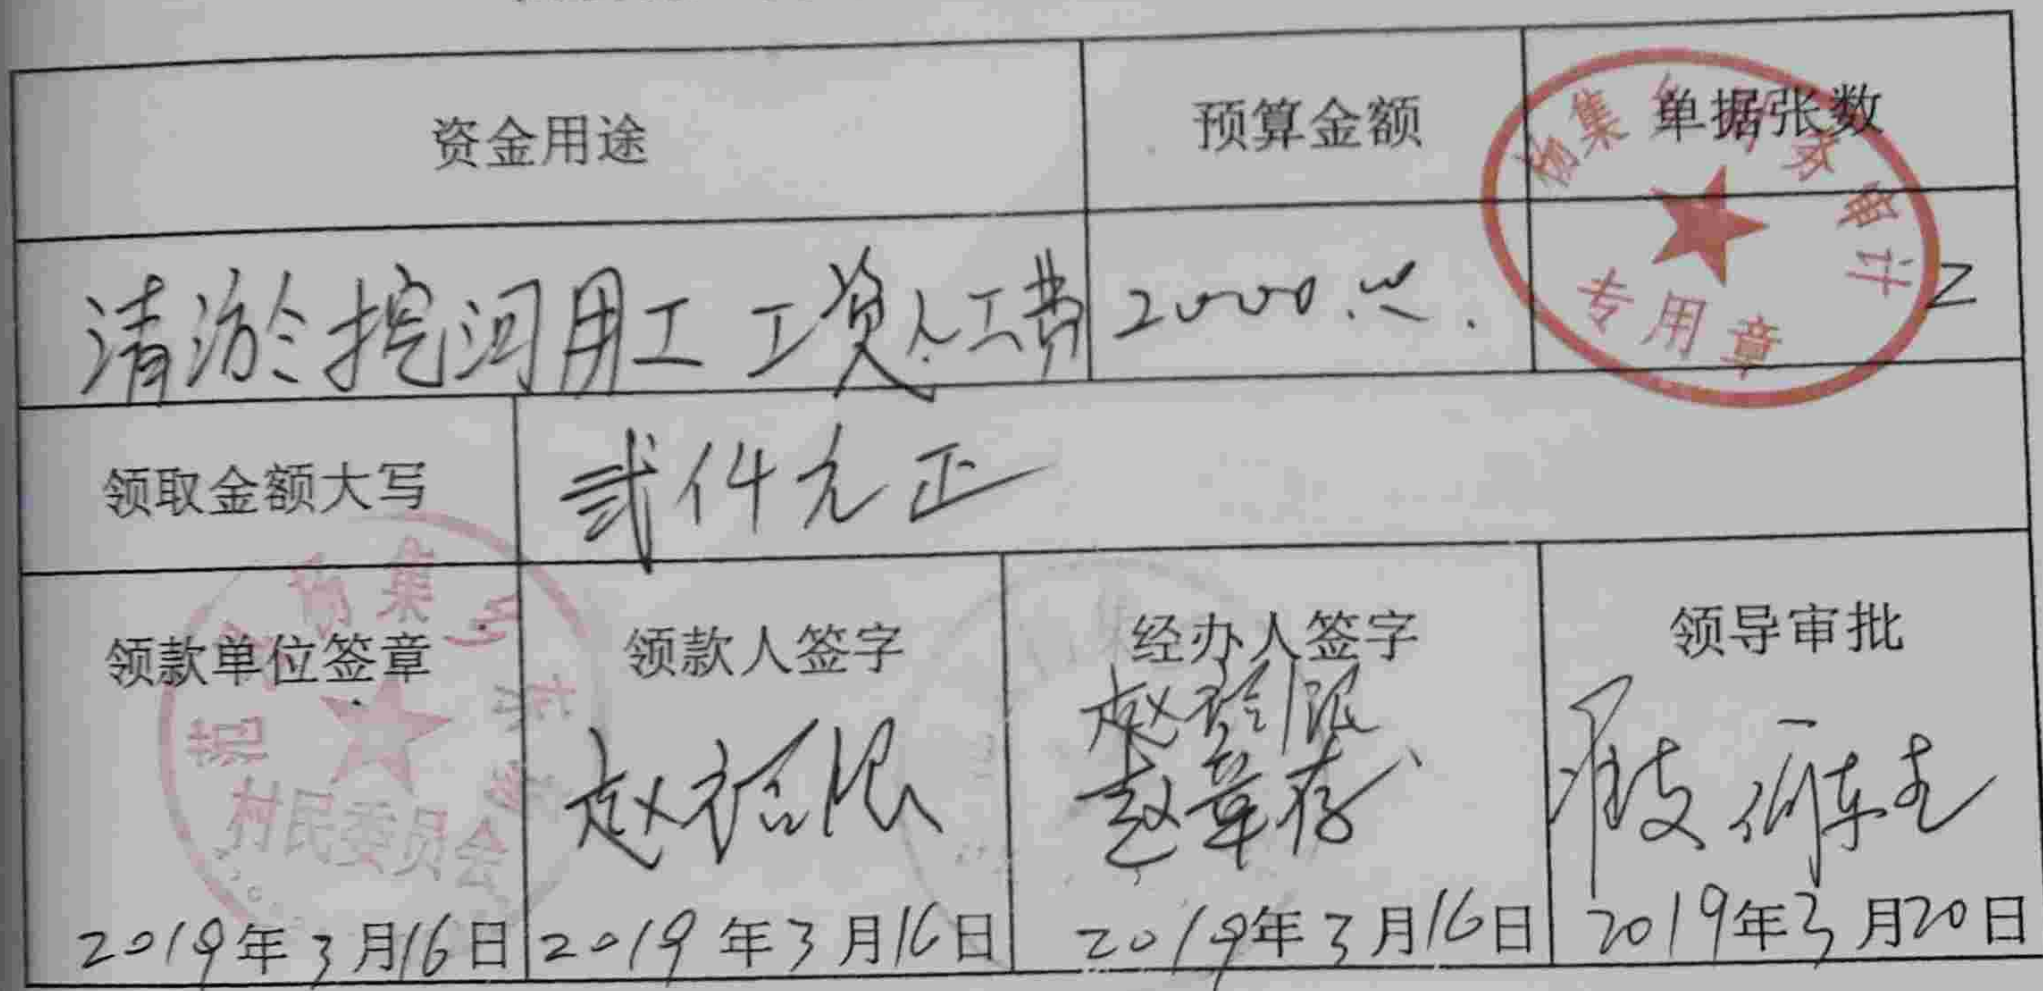 资金用途 预算金额 单据张数
清淤挖河用工 工资人工费 2000.00. 2
杨集 审计
专用章
领取金额大写 贰仟元正
领款单位签章 领款人签字 经办人签字 领导审批
杨集乡
村民委员会
赵 赵章存
2019年3月16日 2019年3月16日 2019年3月16日 2019年3月20日